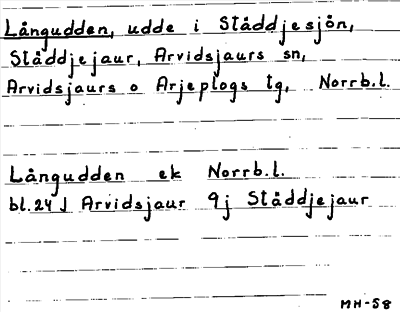 Långudden, udde i Ståddjesjön,
Ståddjejaur, Arvidsjaurs sn,
Arvidsjaurs o Arjeplogs tg, Norrb.l.
Långudden ek Norrb.l.
bl.24 J Arvidsjaur 9j Ståddjejaur
MH-58